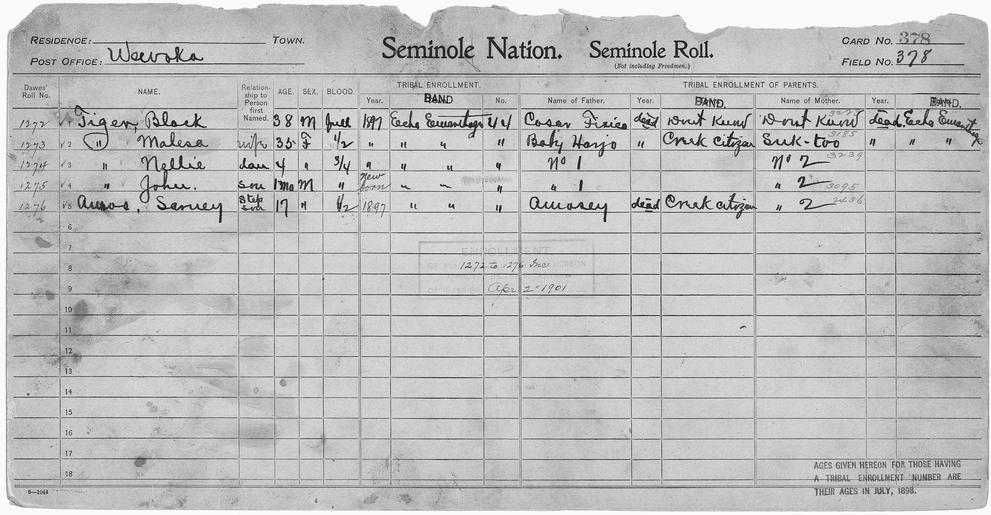 RESIDENCE: TOWN. Seminole Nation. Seminole Roll. CARD NO. 378
POST OFFICE: Wewoka (Not including Freedmen.) FIELD NO. 378
Dawes' Roll No. NAME. Relationship to Person first Named. AGE. SEX. BLOOD. TRIBAL ENROLLMENT. TRIBAL ENROLLMENT OF PARENTS.
Year. BAND No. Name of Father. Year. BAND. Name of Mother. Year. BAND.
1272 √1 Tiger, Black 38 M full 1897 Echo 44 Cosar Fixico dead Dont Know Dont Know dead Echo
1273 √2 " Malesa wife 35 F 1/2 " " " " Boby Harjo " Creek citizen Suk-too 3185 " " "
1274 √3 " Nellie dau 4 " 3/4 " " " " No 1 No 2 3239
1275 √4 " John. son 1mo M " New born " " " 1 " 2 3095
1276 √5 Amos, Sarney Step son 17 " 1/2 1897 " " " Amosey dead Creek citizen " 2 2436
6
7
ENROLLMENT
8 1272 to 1276 Inc HEREON
9 Apr 2 1901
10
11
12
13
14
15
16
17
18
AGES GIVEN HEREON FOR THOSE HAVING
A TRIBAL ENROLLMENT NUMBER ARE
THEIR AGES IN JULY, 1898.
6—2044